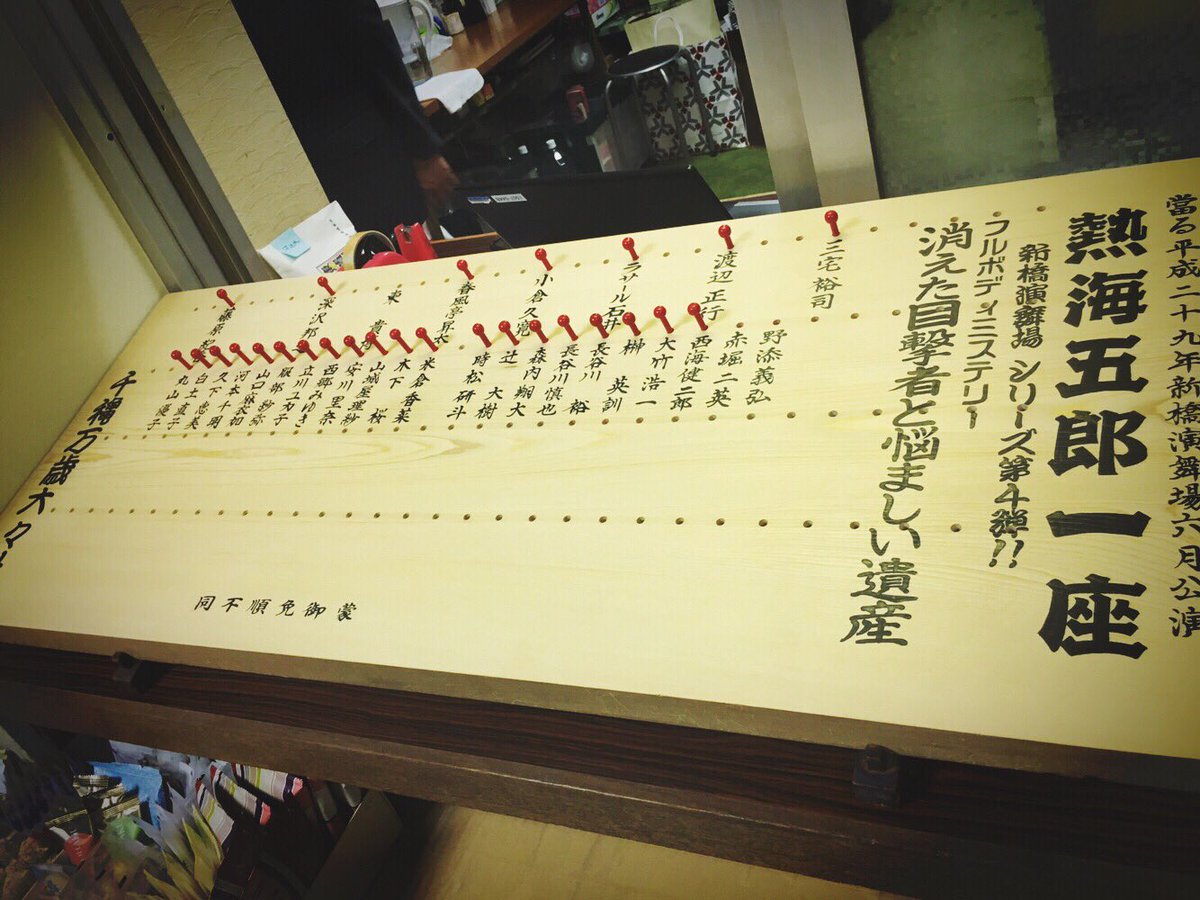 當る平成二十九年新橋演舞場六月公演
熱海五郎一座
新橋演舞場 シリーズ第4弾!!
フルボディミステリー
消えた目撃者と悩ましい遺産
三宅裕司
渡辺正行
ラサール石井
小倉久寛
春風亭昇太
東貴博
深沢邦
藤原紀
野添義弘
赤堀二英
西海健二郎
大竹浩一
榊英訓
長谷川裕
長谷川慎也
森内翔大
辻大樹
時松研斗
米倉香菜
木下桜
山城屋理紗
安川里奈
西郷みゆき
立川ユカ子
服部紗弥
山口麻衣加
河本千明
久下恵美
白土直子
丸山優子
千穐万歳大々
蒙御免順不同